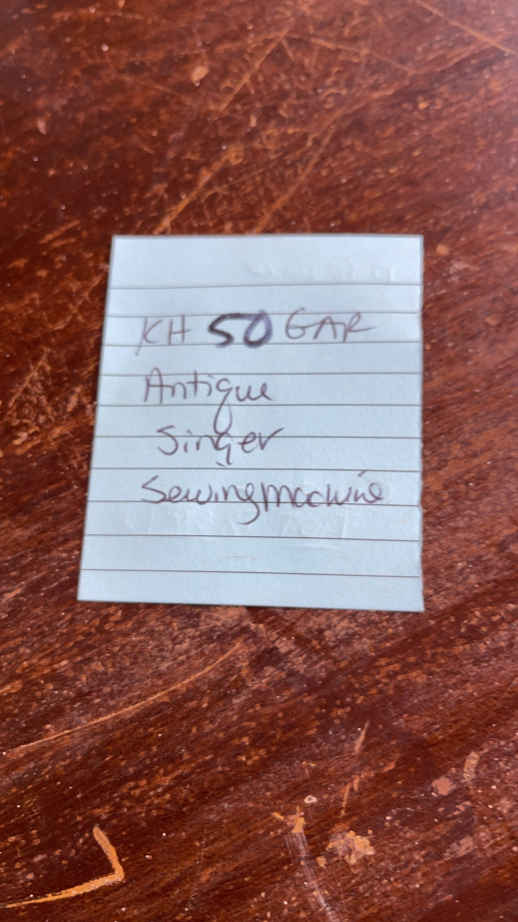 KH 50 GAR
Antique
Singer
Sewingmachine